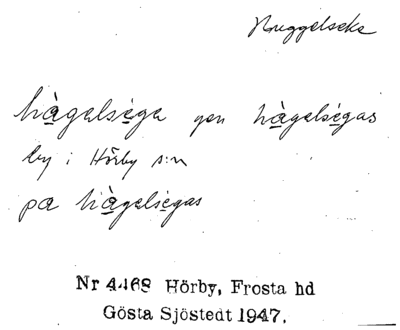 Huggelseke
hàgalsega gen hàgalsegas
by i Hörby s:n
pa hàgalsegas
Nr 4468 Hörby, Frosta hd
Gösta Sjöstedt 1947.